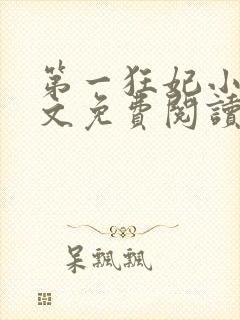 第一狂妃小
文免費閱讀
呆飄飄